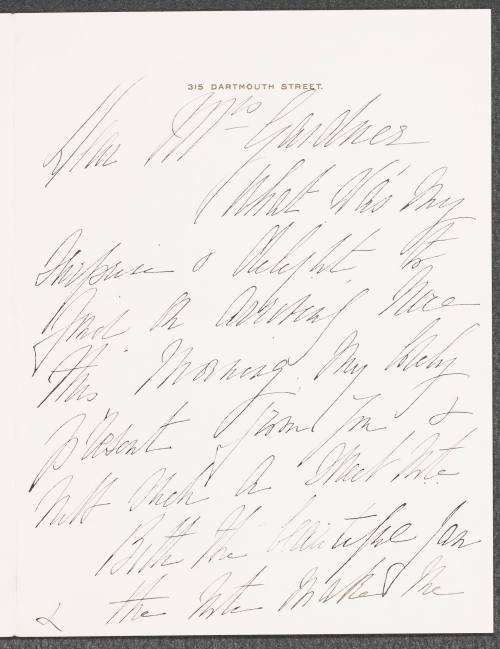 315 DARTMOUTH STREET.
Dear Mrs Gardner
What was my
surprise & delight to
find on arriving here
this morning my lovely
present from you &
with such a sweet note
Both the beautiful fan
& the note makes me